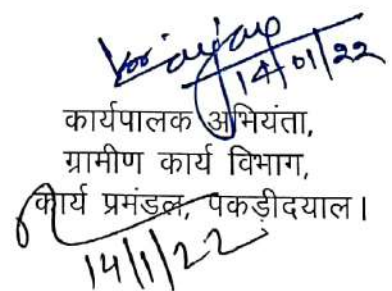 14/01/22
कार्यपालक अभियंता,
ग्रामीण कार्य विभाग,
कार्य प्रमंडल, पकड़ीदयाल।
14/1/22